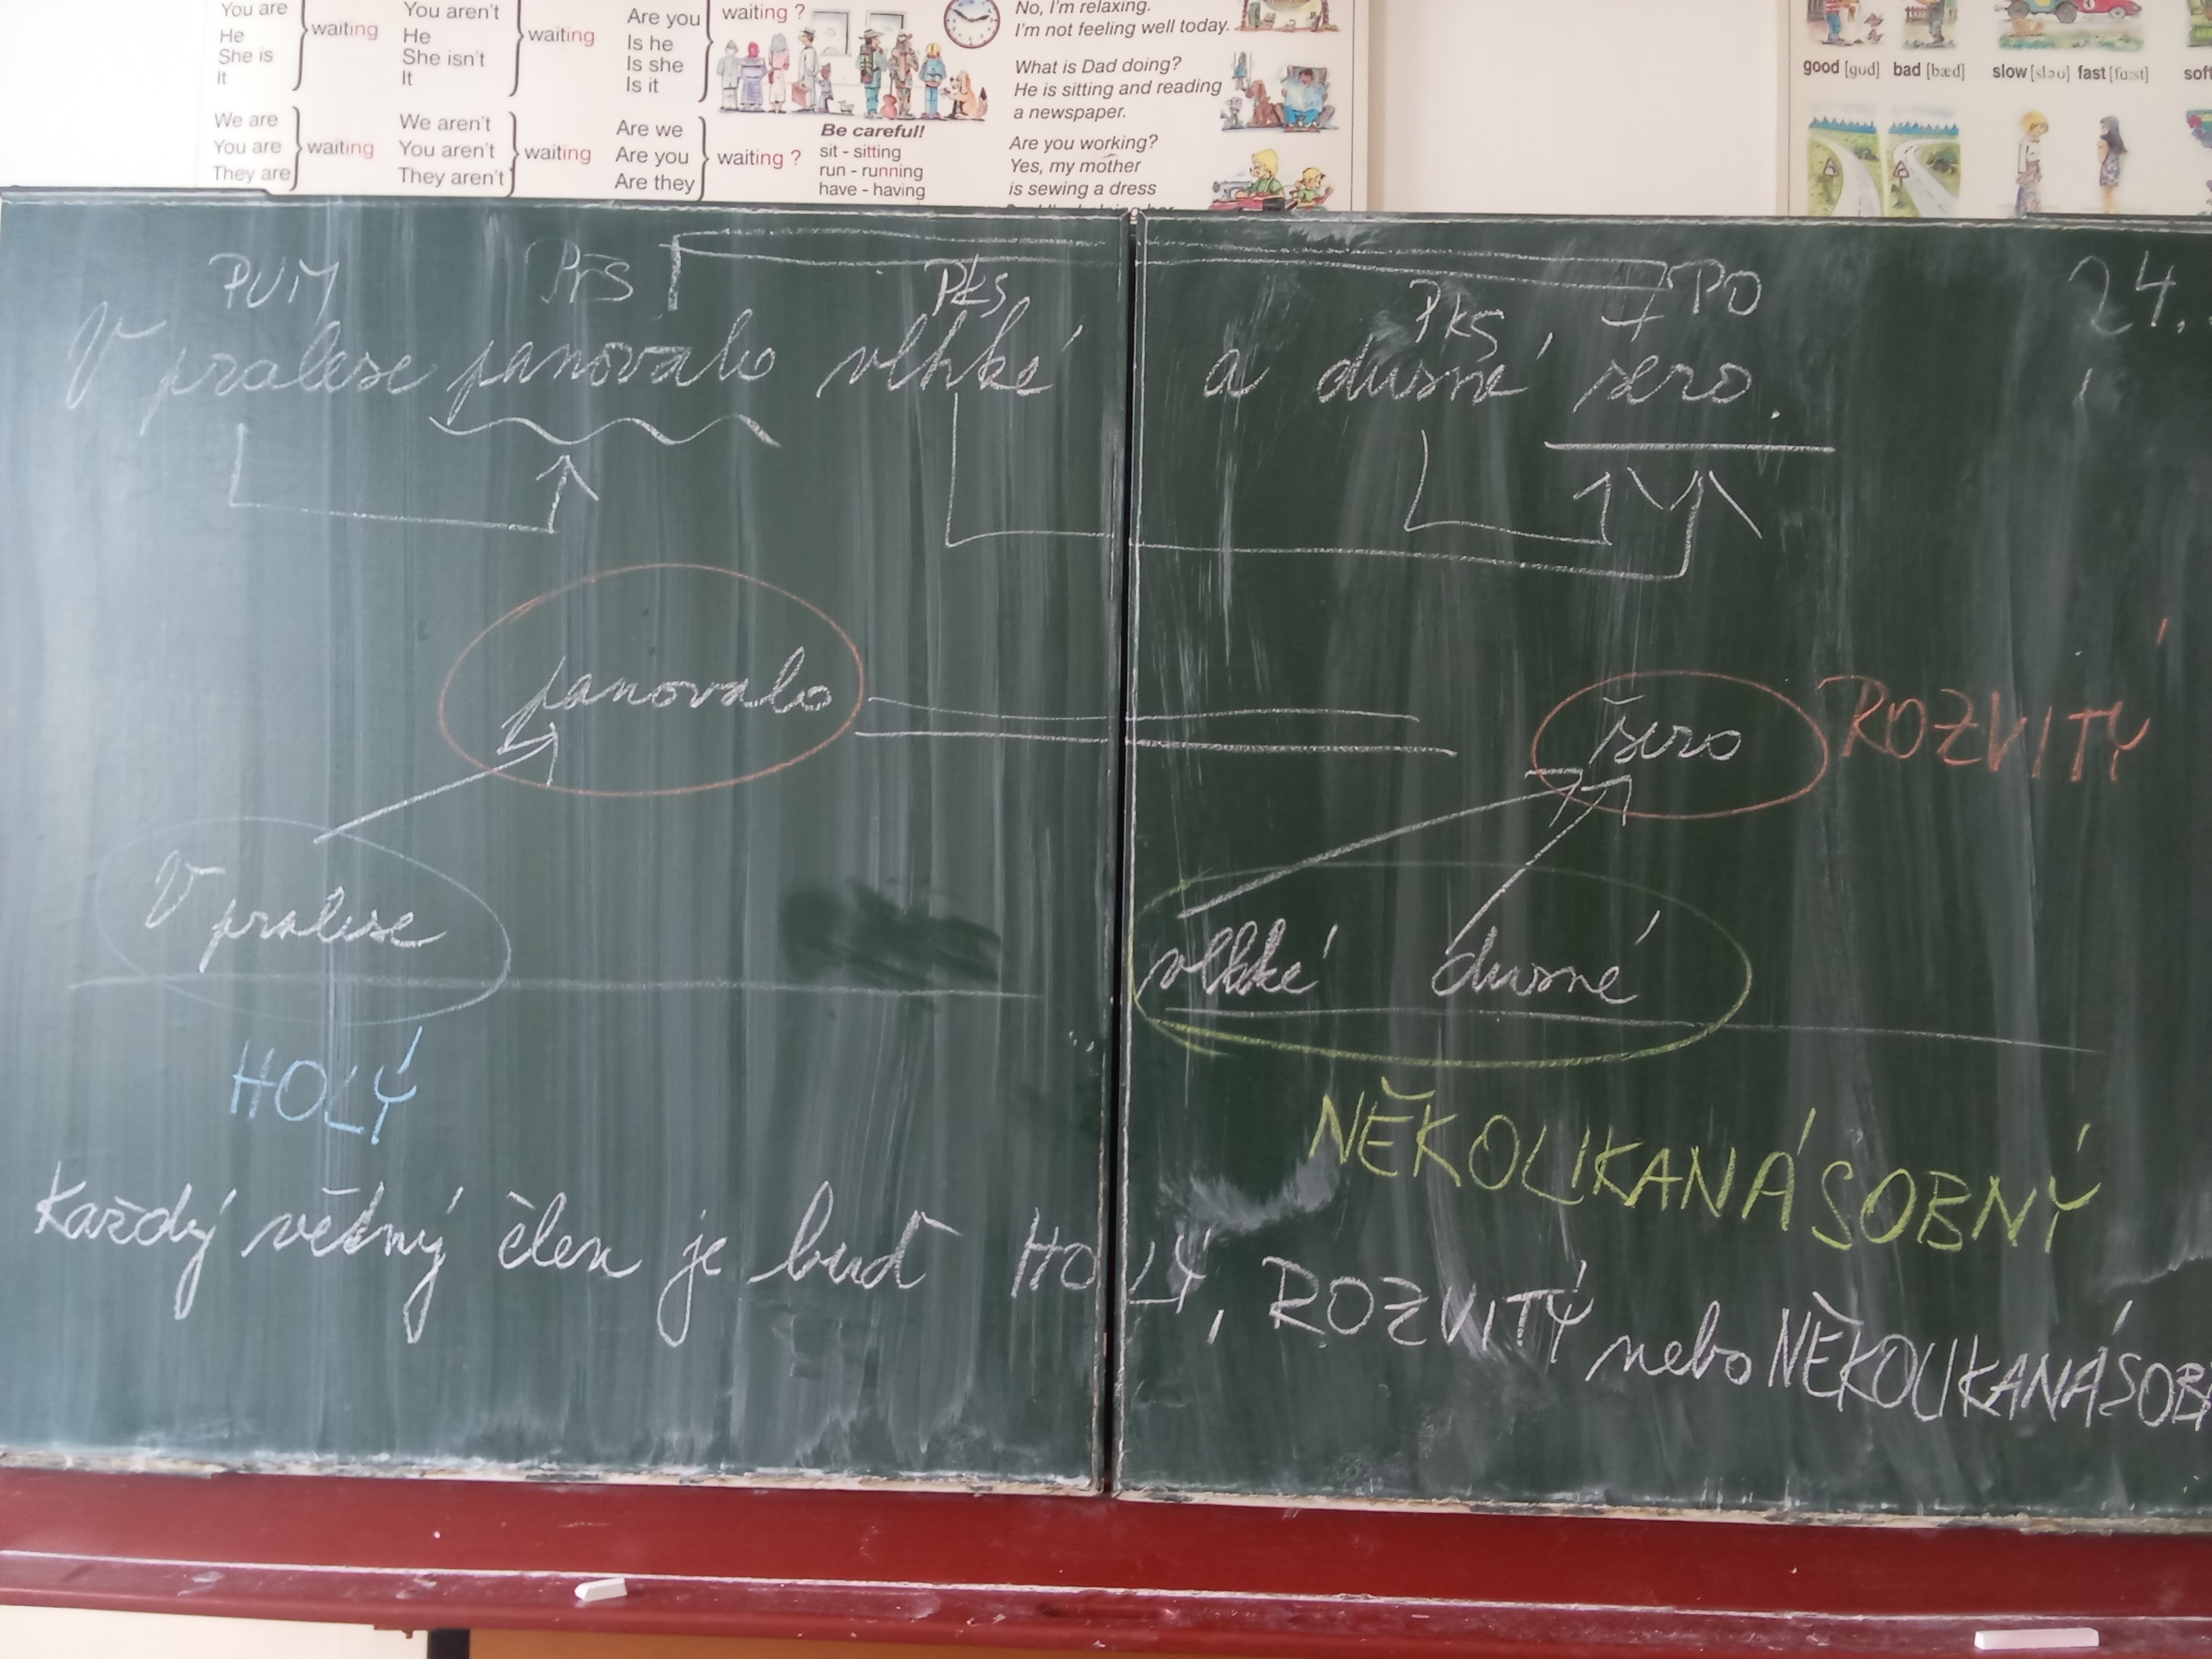 You are
He
She is
It
waiting
You aren't
He
She isn't
It
waiting
Are you
Is he
Is she
Is it
waiting ?
No, I'm relaxing.
I'm not feeling well today.
What is Dad doing?
He is sitting and reading
a newspaper.
We are
You are
They are
waiting
We aren't
You aren't
They aren't
waiting
Are we
Are you
Are they
waiting ?
Be careful!
sit - sitting
run - running
have - having
Are you working?
Yes, my mother
is sewing a dress
good [gud] bad [bæd] slow [sləu] fast [fɑ:st]
PUM PřS PkS PkS PO 24.
V pralese panovalo vlhké a dusné šero.
panovalo šero ROZVITÝ
V pralese vlhké dusné
HOLÝ
NĚKOLIKANÁSOBNÝ
Každý větný člen je buď HOLÝ, ROZVITÝ nebo NĚKOLIKANÁSOB